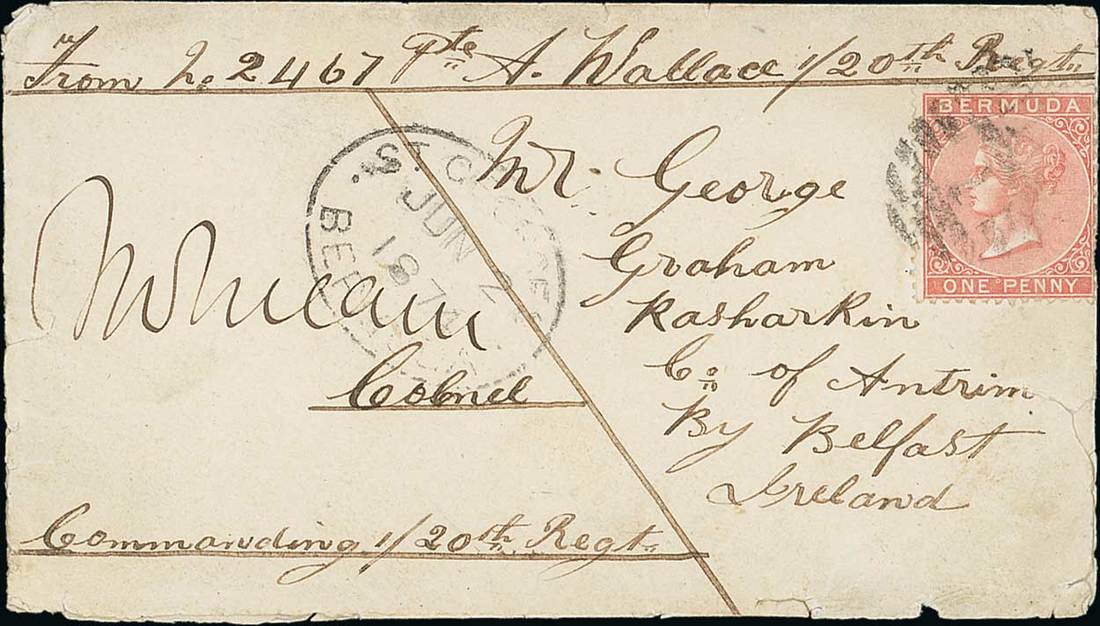 From No 2467 Pte A. Wallace 1/20th Regt
BERMUDA
ONE PENNY
Mr. George
Graham
Rasharkin
Co of Antrim
By Belfast
Ireland
ST GEORGES
JUN 2
187
BERMUDA
Colonel
Commanding 1/20th Regt